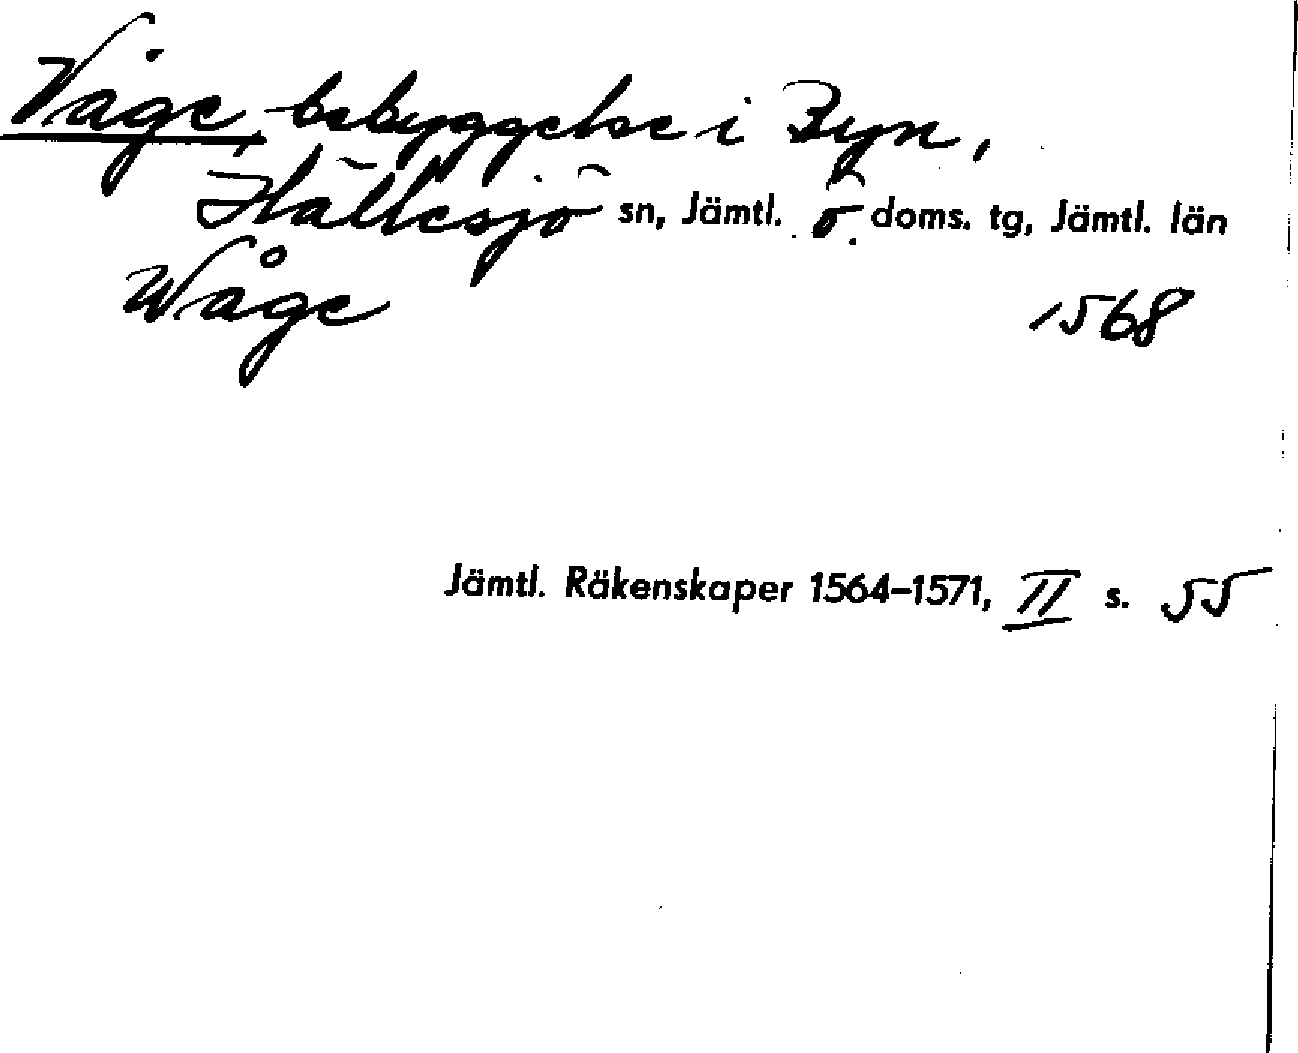 Våge, bebyggelse i Byn,
Hällesjö sn, Jämtl. ö. doms. tg, Jämtl. län
Wåge 1568
Jämtl. Räkenskaper 1564–1571, II s. 55